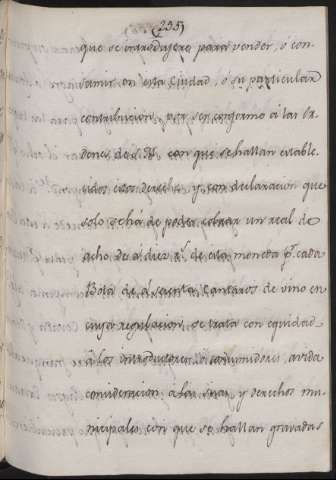 (255)
que se introdugere para vender, ó con-
sumir en esta Ciudad, ó su particular
contribucion, por ser conforme à las or-
denes de S. M. con que se hallan estable-
cidos estos derechos, y con declaracion que
solo se há de poder cobrar un real de
acho de à diez rs. de esta moneda pr. cada
Bota de à sesenta Cantaros de vino en
cuyo regulacion se trata con equidad
à los introductores, ó consumidores, avida
consideracion a las sisas, y derechos mu-
nicipales, con que se hallan gravadas